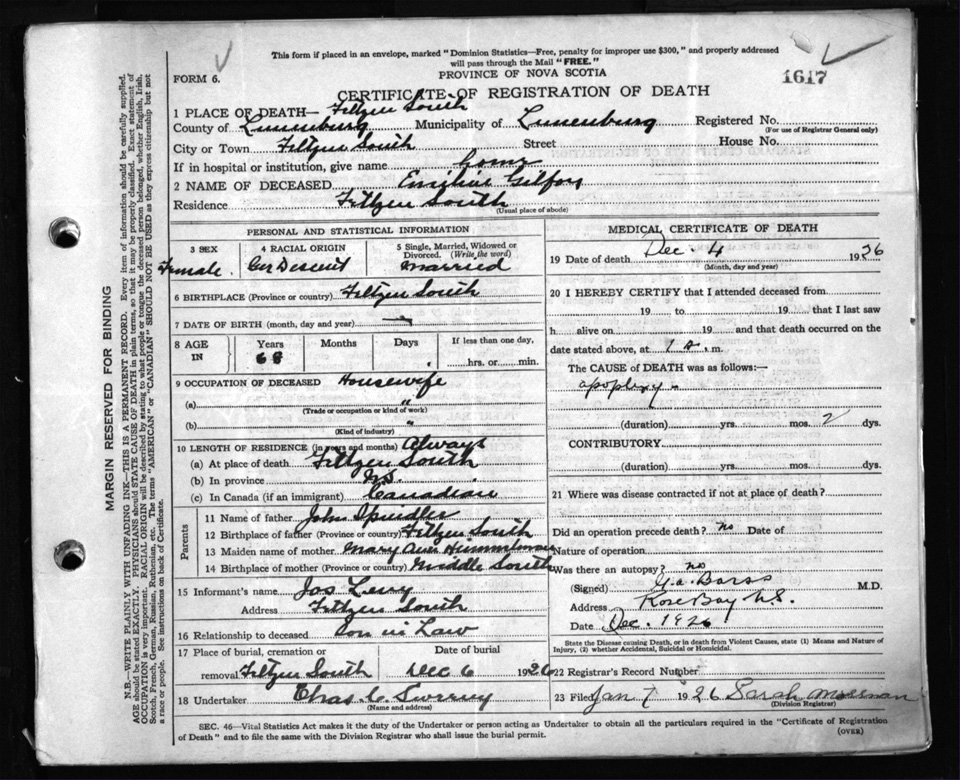 This form if placed in an envelope, marked "Dominion Statistics—Free, penalty for improper use $300," and properly addressed
will pass through the Mail "FREE."
FORM 6.
PROVINCE OF NOVA SCOTIA
1617
CERTIFICATE OF REGISTRATION OF DEATH
1 PLACE OF DEATH— Feltzen South
County of Lunenburg Municipality of Lunenburg Registered No.
(For use of Registrar General only)
City or Town Feltzen South Street House No.
If in hospital or institution, give name home
2 NAME OF DECEASED Emeline
Residence Feltzen South
(Usual place of abode)
PERSONAL AND STATISTICAL INFORMATION
3 SEX 4 RACIAL ORIGIN 5 Single, Married, Widowed or
Divorced. (Write the word)
Female Ger Descent Married
6 BIRTHPLACE (Province or country) Feltzen South
7 DATE OF BIRTH (month, day and year)
8 AGE IN Years Months Days If less than one day,
68 hrs. or min.
9 OCCUPATION OF DECEASED Housewife
(a) "
(Trade or occupation or kind of work)
(b) "
(Kind of industry)
10 LENGTH OF RESIDENCE (in years and months) Always
(a) At place of death Feltzen South
(b) In province N.S.
(c) In Canada (if an immigrant) Canadian
Parents
11 Name of father John Spindler
12 Birthplace of father (Province or country) Feltzen South
13 Maiden name of mother Mary Ann Himmelman
14 Birthplace of mother (Province or country) Middle South
15 Informant's name Jos Levy
Address Feltzen South
16 Relationship to deceased Son in Law
17 Place of burial, cremation or Date of burial
removal Feltzen South Dec 6 1926
18 Undertaker Chas. C.
(Name and address)
MEDICAL CERTIFICATE OF DEATH
19 Date of death Dec 4 1926
(Month, day and year)
20 I HEREBY CERTIFY that I attended deceased from
19 to 19 that I last saw
h alive on 19 and that death occurred on
date stated above, at 1 a. m.
The CAUSE of DEATH was as follows:—
apoplexy
(duration) yrs. mos. 2 dys.
CONTRIBUTORY
(duration) yrs. mos. dys.
21 Where was disease contracted if not at place of death?
Did an operation precede death? no Date of
Nature of operation
Was there an autopsy? no
(Signed) G.A. Barss M.D.
Address Rose Bay N.S.
Date Dec. 1926
State the Disease causing Death, or in death from Violent Causes, state (1) Means and Nature of
Injury, (2) whether Accidental, Suicidal or Homicidal.
22 Registrar's Record Number
23 Filed Jan 7 1926 Sarah Mossman
(Division Registrar)
SEC. 46—Vital Statistics Act makes it the duty of the Undertaker or person acting as Undertaker to obtain all the particulars required in the "Certificate of Registration
of Death" and to file the same with the Division Registrar who shall issue the burial permit.
(OVER)
MARGIN RESERVED FOR BINDING
N.B.—WRITE PLAINLY WITH UNFADING INK—THIS IS A PERMANENT RECORD. Every item of information should be carefully supplied.
AGE should be stated EXACTLY. PHYSICIANS should STATE CAUSE OF DEATH in plain terms, so that it may be properly classified. Exact statement of
OCCUPATION is very important. RACIAL ORIGIN will be described by stating to what people or tongue the deceased person belonged, whether English, Irish,
Scotch, French, German, Russian, Ruthenian, etc. The terms "AMERICAN" or "CANADIAN" SHOULD NOT BE USED as they express citizenship but not
a race or people. See instructions on back of Certificate.